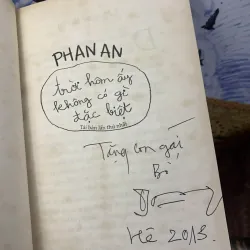 PHAN AN
trời hôm ấy
không có gì
đặc biệt
Tái bản lần thứ nhất
Tặng con gái
Bò,
Hè 2013